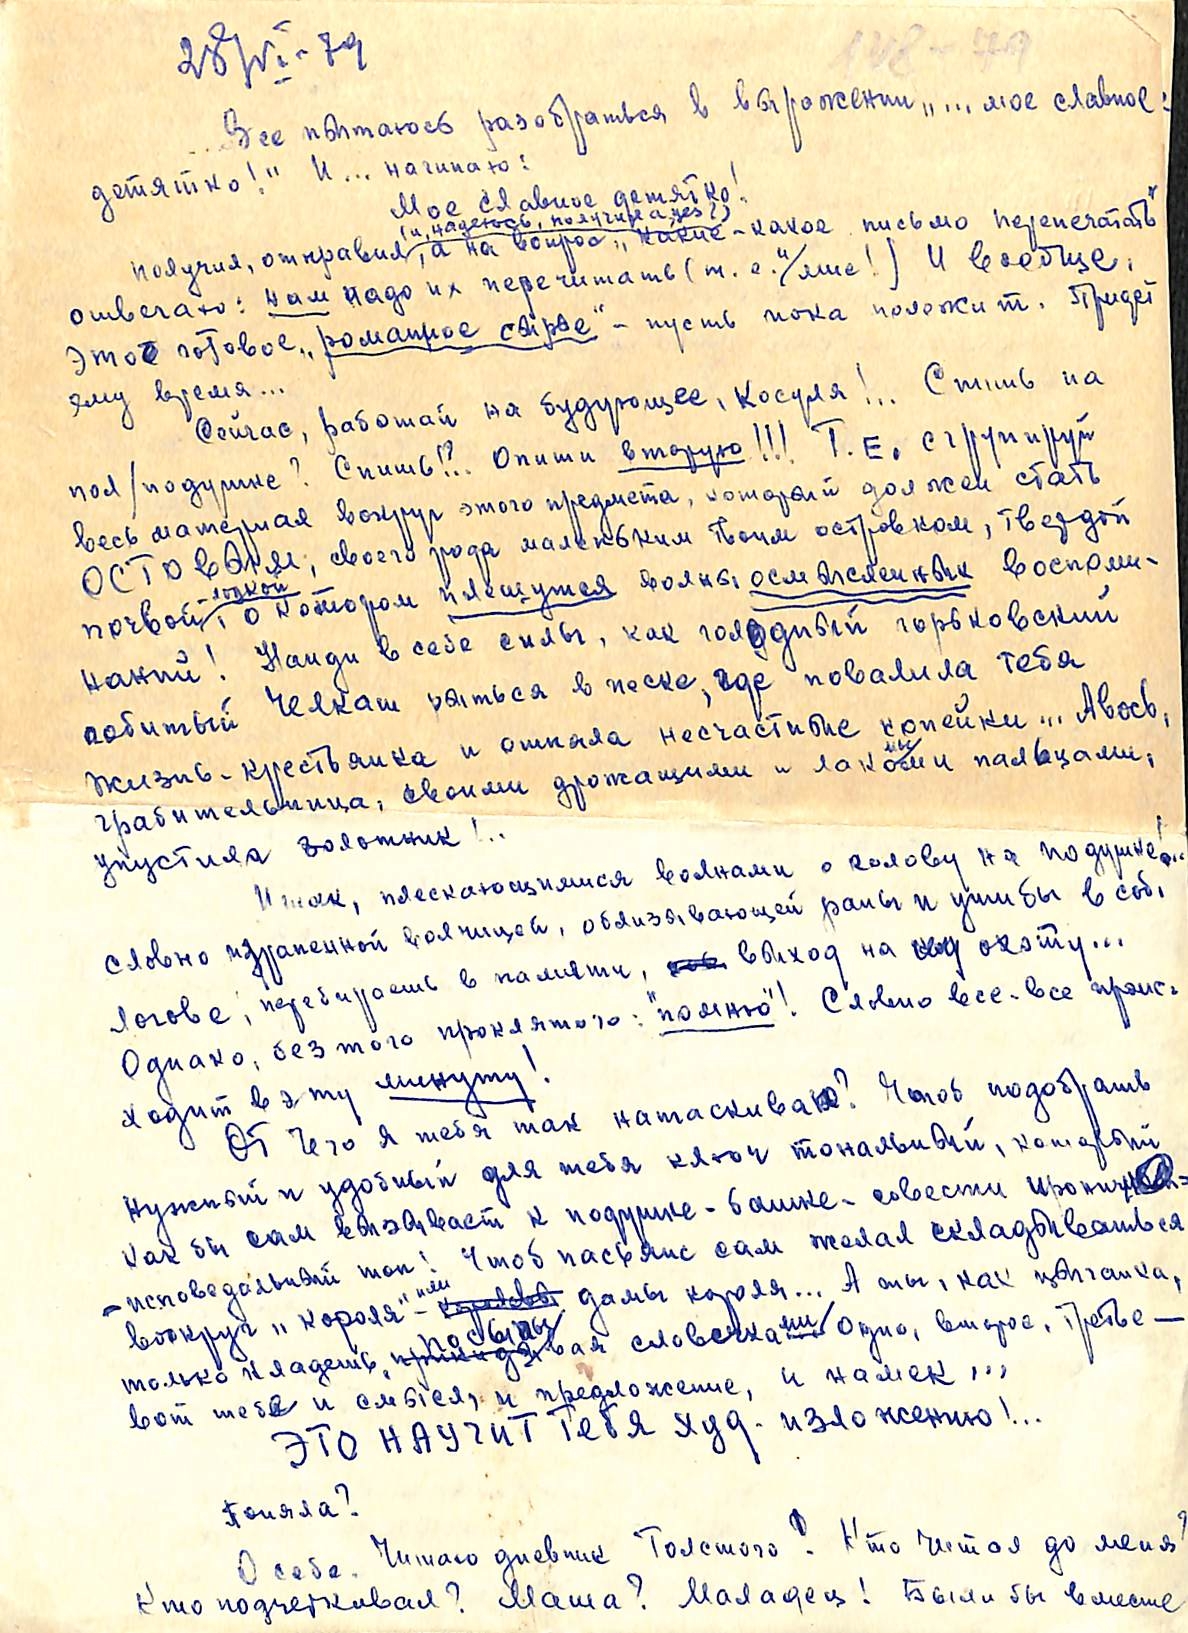 28/VI-79
Все пытаюсь разобраться в выражении „... мое славное
детятко!" И... начинаю:
Мое славное детятко!
(и, надеюсь, получила уез?)
Получил, отправил, а на вопрос „какие-какое письмо перепечатать"
отвечаю: нам надо их перечитать (т. е. "/мне!) И вообще,
это готовое „романное сырье" - пусть пока полежит. Придет
ему время...
Сейчас, работай на будующее, Косуля!.. Спишь на
пол/подушке? Спишь!?.. Опиши вторую!!! Т.Е. сгрупируй
весь материал вокруг этого предмета, который должен стать
ОСТОВОМ, своего рода маленьким твоим островком, твердой
почвой-лодкой, о котором плещутся волны осмысленных воспоми-
наний! Найди в себе силы, как голодный горьковский
побитый Челкаш рыться в песке, где повалила тебя
жизнь-крестьянка и отняла несчастные копейки... Авось,
грабительница, своими дрожащими и лакомыми пальцами,
упустила золотник!..
Итак, плескающимися волнами о голову на подушке!...
словно израненной волчицей, облизывающей раны и ушибы в соб.
логове, перебираешь в памяти, выход на охоту...
Однако, без того проклятого: "помню"! Словно все-все проис-
ходит в эту минуту!
От чего я тебя так натаскиваю? Чтоб подобрать
нужный и удобный для тебя ключ тональный, который
как бы сам вызывает к подушке-башке-совести иронич
-исповедальный тон! Чтоб пасьянс сам желал складываться
вокруг „короля"-"или дамы короля... А ты, как цыганка,
только кладешь, словечками Одно, второе, третье —
вот тебе и смысл, и предложение, и намек...
ЭТО НАУЧИТ ТЕБЯ худ. изложению!...
Поняла?
О себе. Читаю дневник Толстого! Кто читал до меня?
Кто подчеркивал? Маша? Маладец! Были бы вместе